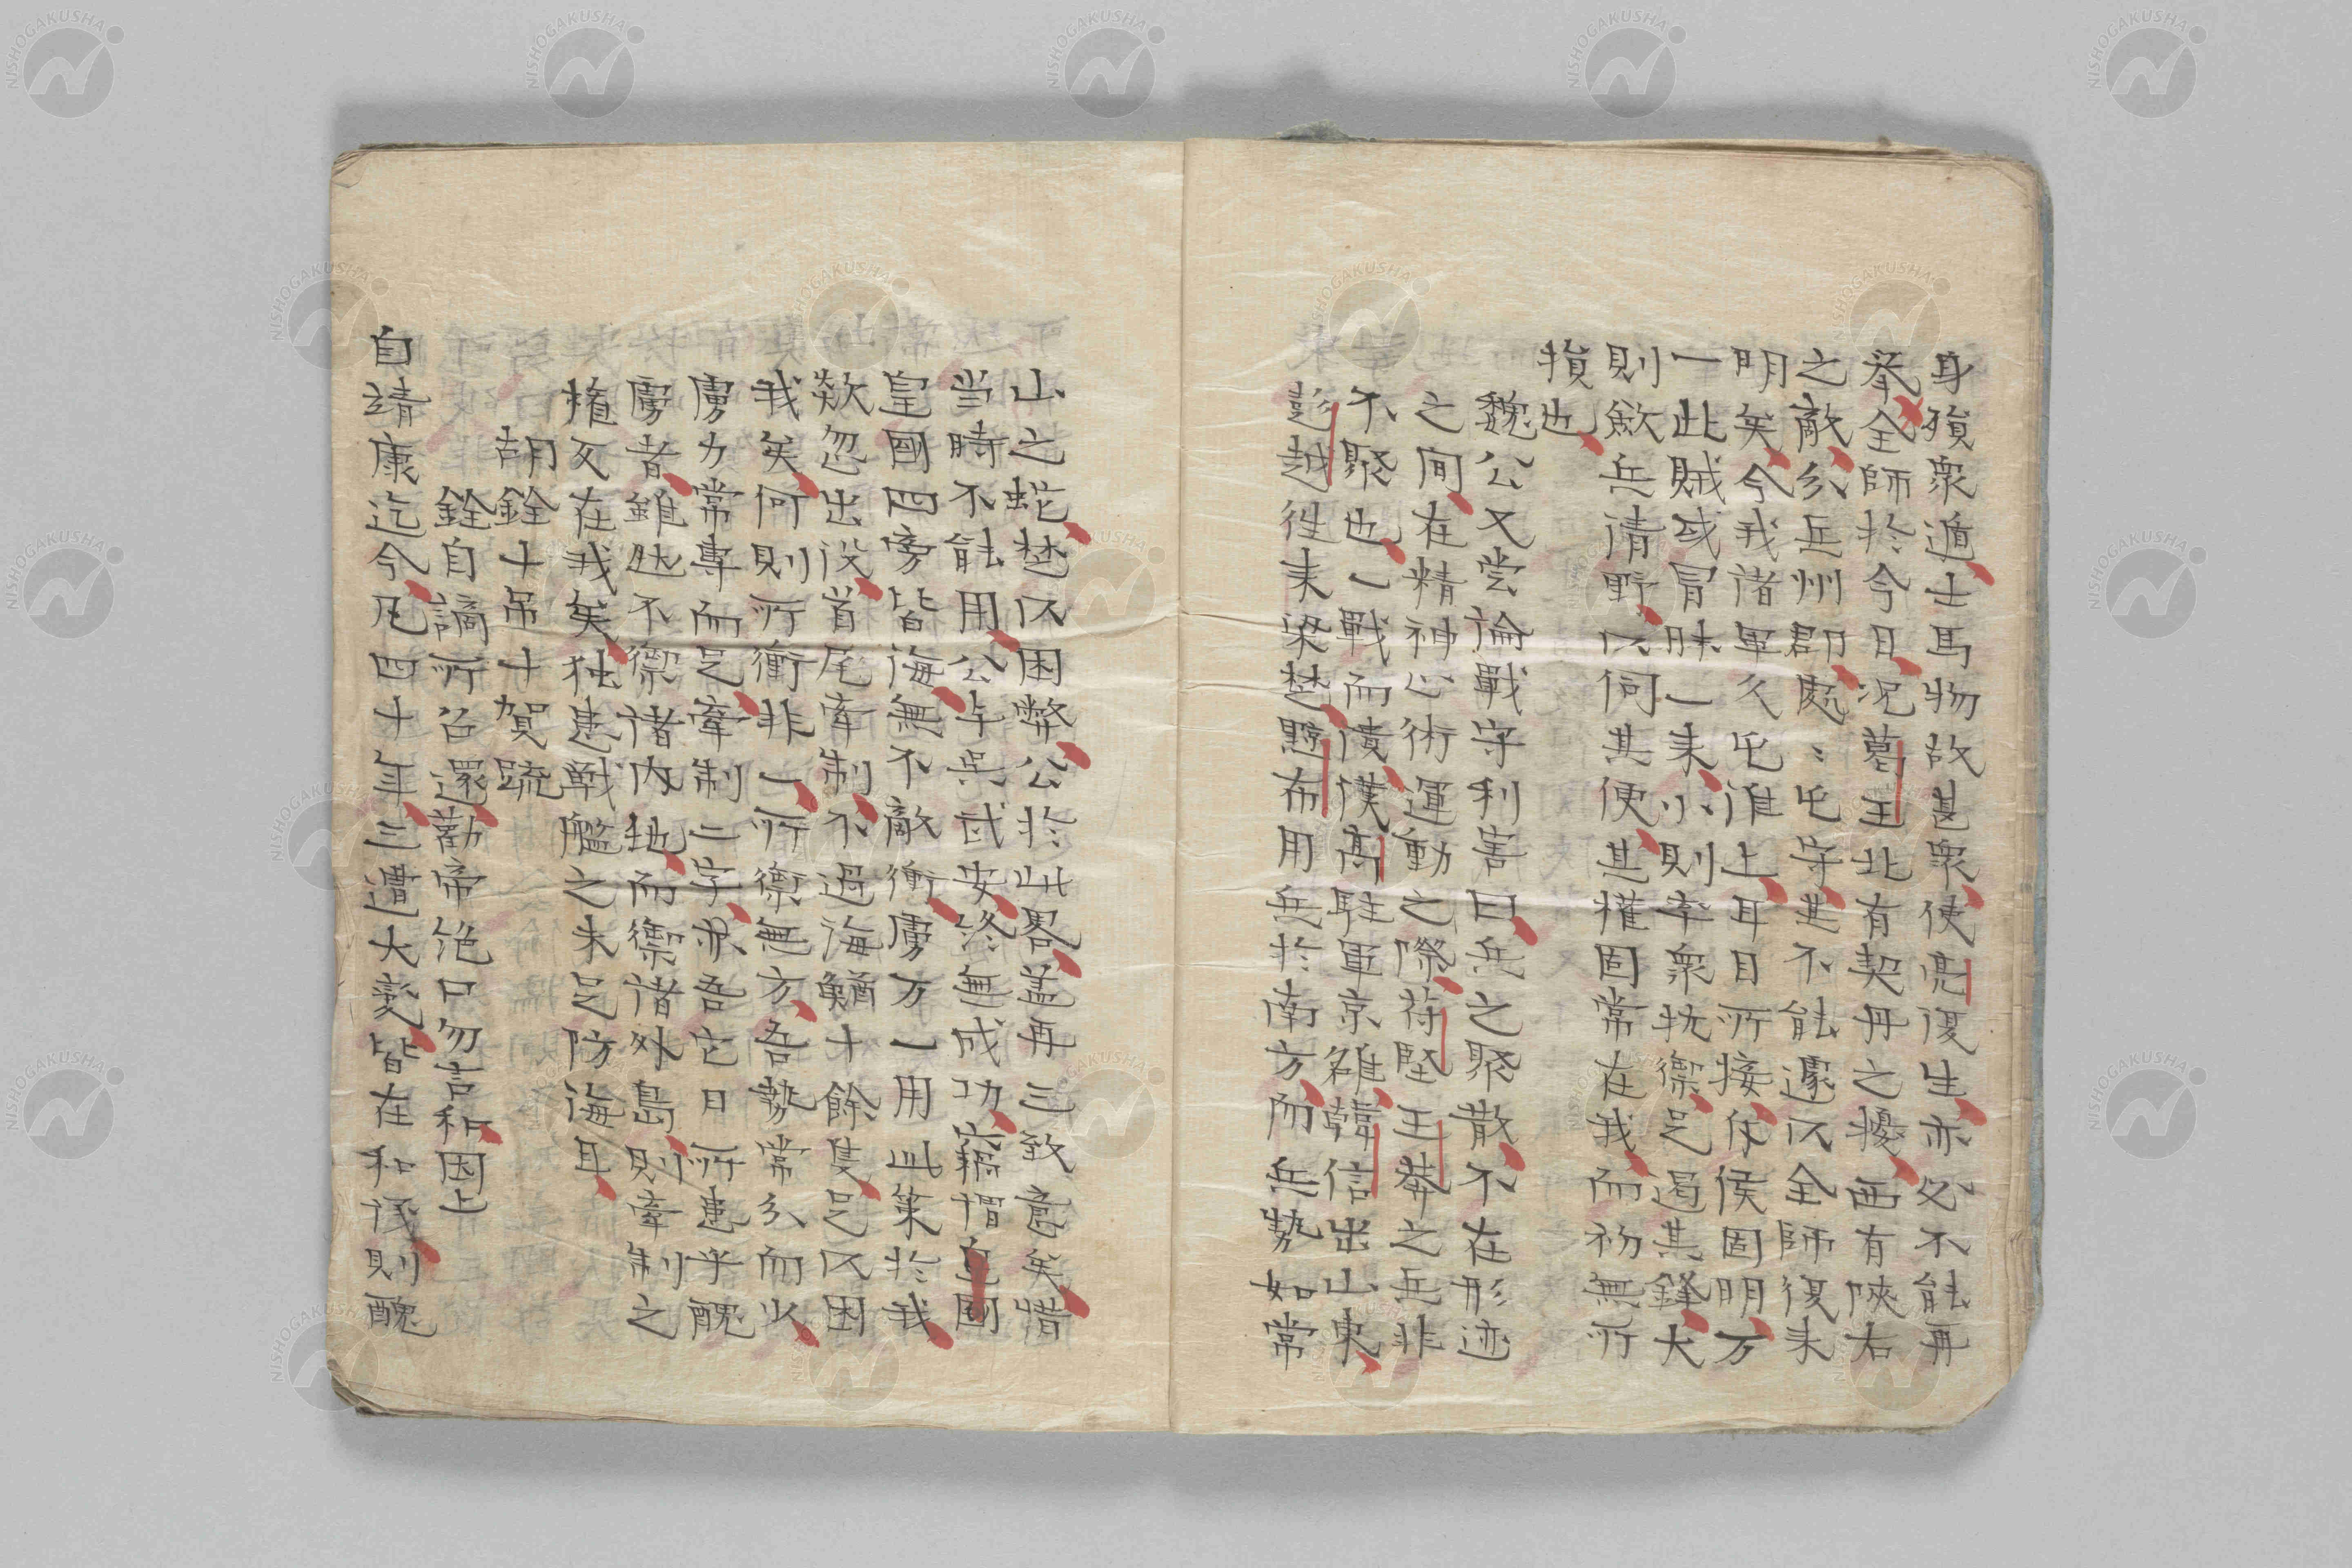 身殞衆遁士馬物故甚衆使亮復生亦必不能再
挙全師於今日况葛王北有契丹之擾西有陝右
之敵分兵州郡處〻屯守其不能遽以全師復来
明矣今我諸軍久屯淮上耳目所接斥候固明万
一此賊或冒昧一来小則率衆抗禦足遏其鋒大
則斂兵清野以伺其便其權固常在我而初無所
損也
魏公又嘗論戰守利害曰兵之聚散不在形迹
之間在精神心術運動之際苻堅王莽之兵非
不聚也一戰而潰漢高駐軍京雒韓信出山東
彭越徃来梁楚黥布用兵於南方而兵勢如常
山之蛇楚以困弊公於此畧盖再三致意矣惜
当時不能用公与呉武安終無成功竊惜皇国
皇國四旁皆海無不敵衝虜万一用此策於我
欻忽出没首尾牽制不過海鰌十餘隻足以困
我矣何則所衝非一所禦無方吾勢常分而少
虜力常專而足牽制二字果吾它日所患乎醜
虜者雖然不禦諸内地而禦諸外島則牽制之
権反在我矣独患戰艦之未足防海耳
胡銓十吊十賀疏
銓自謫所召還勸帝絶口勿言和因上
自靖康迄今凡四十年三遭大變皆在和議則醜